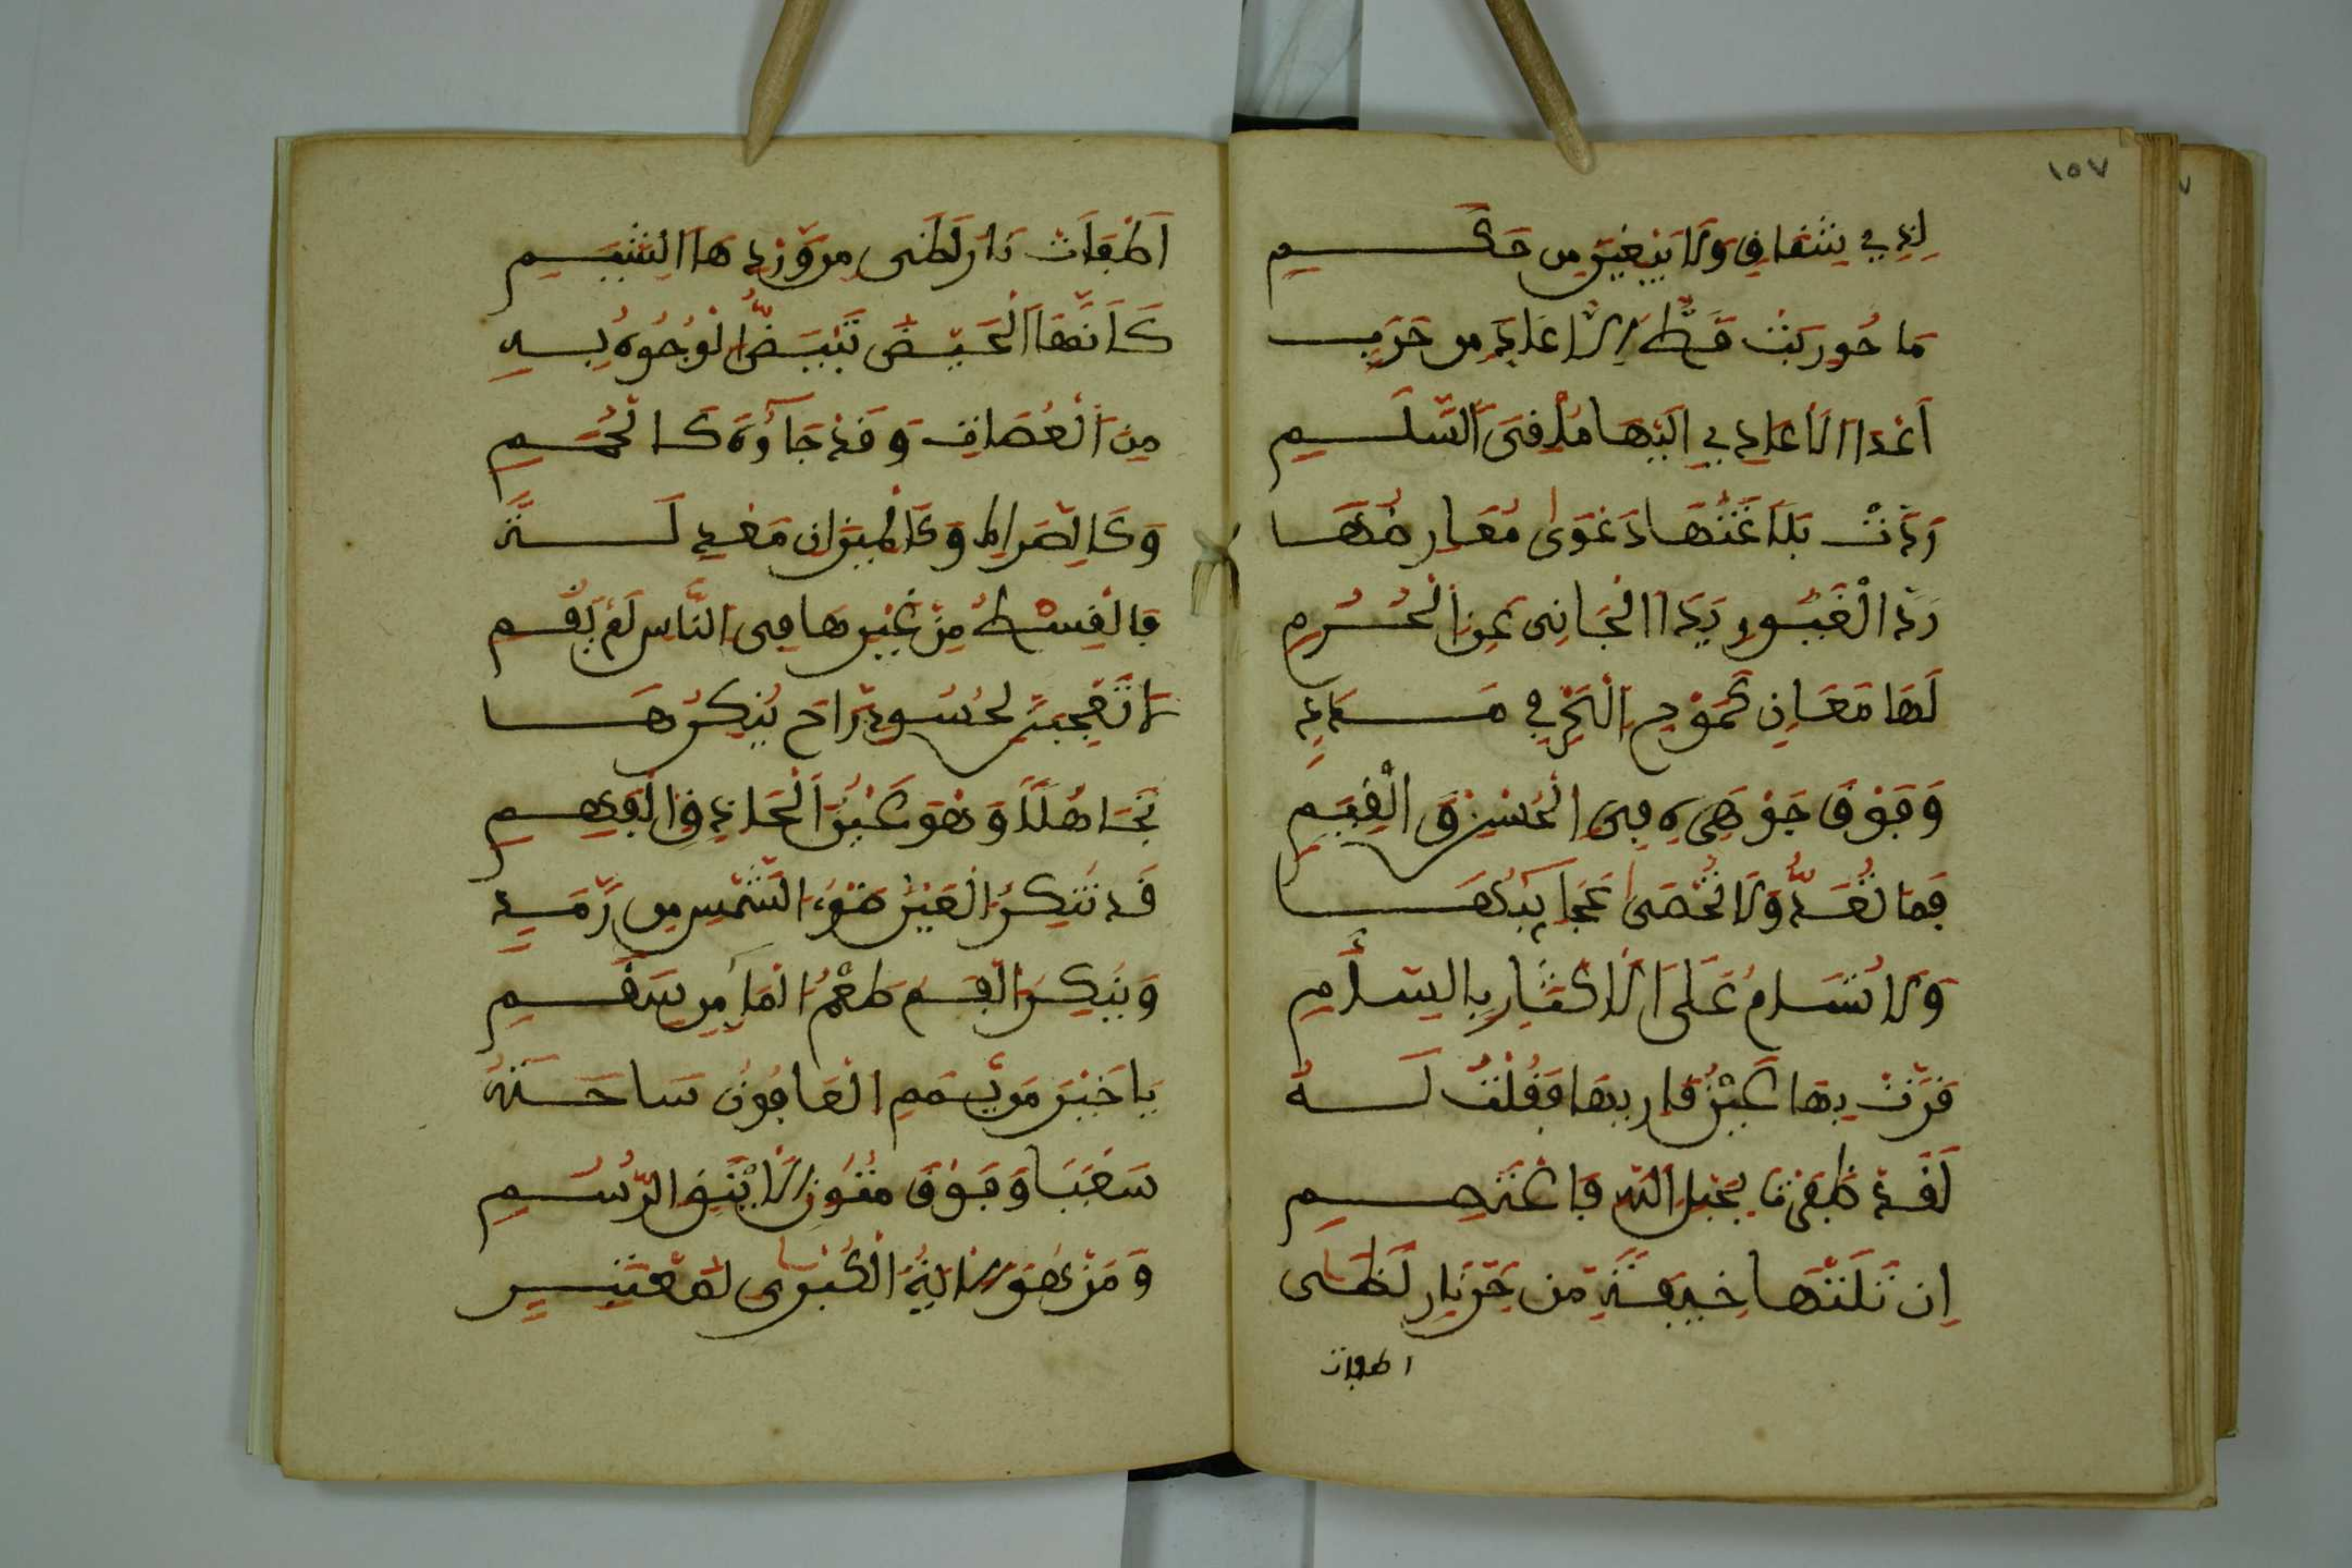 ١٥٧
لِذِي شِقَافٍ وَلَا يَبْغِيَن مِن حَكَمِ
مَا حُورِبَتْ قَطُّ إِلَّا عَادَ مِن حَرَبٍ
أَعْدَا الْأَعَادِي إِلَيْهَا مُلْقِيَ السَّلَمِ
رَدَّتْ بَلَاغَتُهَا دَعْوَى مُعَارِضِهَا
رَدَّ الْغَيُورِ يَدَ الْجَانِي عَنِ الْحُرَمِ
لَهَا مَعَانٍ كَمَوْجِ الْبَحْرِ فِي مَدَدٍ
وَفَوْقَ جَوْهَرِهِ فِي الْحُسْنِ وَالْقِيَمِ
فَمَا تُعَدُّ وَلَا تُحْصَى عَجَايِبُهَا
وَلَا تُسَامُ عَلَى الْإِكْثَارِ بِالسَّأَمِ
قَرَّتْ بِهَا عَيْنُ قَارِيهَا فَقُلْتُ لَهُ
لَقَدْ ظَفِرْتَ بِحَبْلِ اللَّهِ فَاعْتَصِمِ
إِن تَتْلُهَا خِيفَةً مِن حَرِّ نَارِ لَظَى
اطفات
أَطْفَأْتَ نَارَ لَظَى مِن وِرْدِهَا الشَّبِمِ
كَأَنَّهَا الْحَوْضُ تَبْيَضُّ الْوُجُوهُ بِهِ
مِنَ الْعُصَاةِ وَقَدْ جَآءُوهُ كَالْحُمَمِ
وَكَالصِّرَاطِ وَكَالْمِيزَانِ مَعْدِلَةً
فَالْقِسْطُ مِنْ غَيْرِهَا فِي النَّاسِ لَمْ يَقُمِ
لَا تَعْجَبَنْ لِحَسُودٍ رَاحَ يُنْكِرُهَا
تَجَاهُلًا وَهْوَ عَيْنُ الْحَاذِقِ الْفَهِمِ
قَدْ تُنْكِرُ الْعَيْنُ ضَوْءَ الشَّمْسِ مِن رَمَدٍ
وَيُنْكِرُ الْفَمُ طَعْمَ الْمَآءِ مِن سَقَمِ
يَا خَيْرَ مَن يَمَّمَ الْعَافُونَ سَاحَتَهُ
سَعْيًا وَفَوْقَ مُتُونِ الْأَيْنُقِ الرُّسُمِ
وَمَنْ هُوَ الْآيَةُ الْكُبْرَى لِمُعْتَبِرٍ